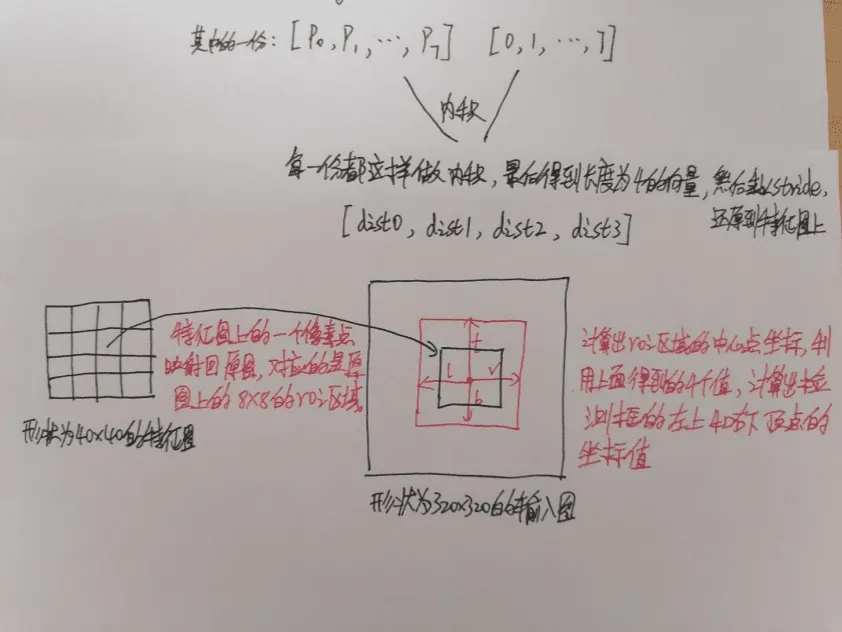 其中的一份: [P0, P1, ..., P7] [0, 1, ..., 7]
内积
每一份都这样做内积, 最后得到长度为4的向量, 然后乘以stride,
还原到特征图上
[dist0, dist1, dist2, dist3]
特征图上的一个像素点
映射回原图, 对应的是原
图上的8x8的roi区域
形状为40x40的特征图
t
l
r
b
形状为320x320的输入图
计算出roi区域的中心点坐标, 利
用上面得到的4个值, 计算出检
测框的左上和右下顶点的
坐标值